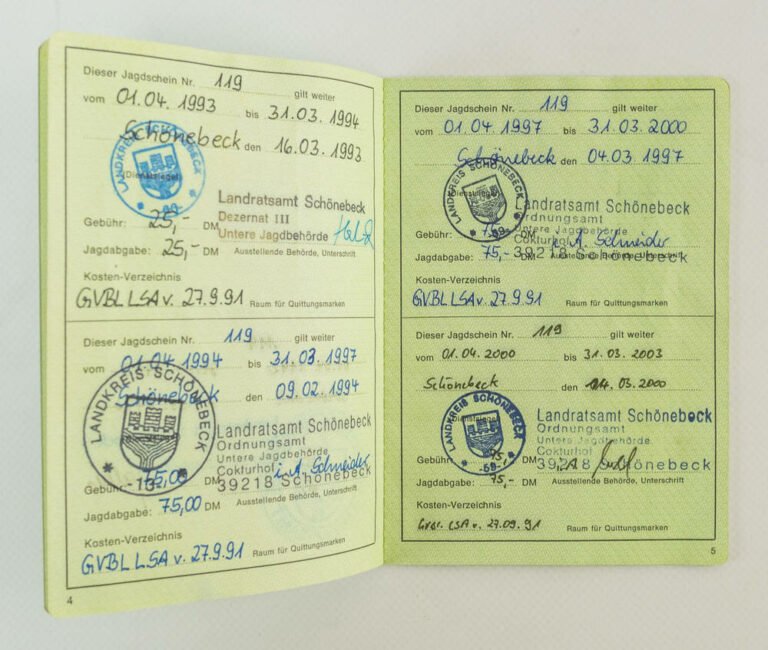 Dieser Jagdschein Nr. 119 gilt weiter
vom 01.04.1993 bis 31.03.1994
Schönebeck den 16.03.1993
Dienstsiegel
LANDKREIS SCHÖNEBECK
Landratsamt Schönebeck
Dezernat III
Untere Jagdbehörde
Gebühr: 25,- DM
Jagdabgabe: 25,- DM Ausstellende Behörde, Unterschrift
Kosten-Verzeichnis
GVBL LSA v. 27.9.91 Raum für Quittungsmarken
Dieser Jagdschein Nr. 119 gilt weiter
vom 01.04.1994 bis 31.03.1997
Schönebeck den 09.02.1994
LANDKREIS SCHÖNEBECK
-13-
Landratsamt Schönebeck
Ordnungsamt
Untere Jagdbehörde
Cokturhof
39218 Schönebeck
i.A. Schneider
Gebühr: 75,00 DM
Jagdabgabe: 75,00 DM Ausstellende Behörde, Unterschrift
Kosten-Verzeichnis
GVBL LSA v. 27.9.91 Raum für Quittungsmarken
4
Dieser Jagdschein Nr. 119 gilt weiter
vom 01.04.1997 bis 31.03.2000
Schönebeck den 04.03.1997
Dienstsiegel
LANDKREIS SCHÖNEBECK
-69-
Landratsamt Schönebeck
Ordnungsamt
Untere Jagdbehörde
Cokturhof
39218 Schönebeck
i.A. Schneider
Gebühr: 75,- DM
Jagdabgabe: 75,- DM Ausstellende Behörde, Unterschrift
Kosten-Verzeichnis
GVBL LSA v. 27.9.91 Raum für Quittungsmarken
Dieser Jagdschein Nr. 119 gilt weiter
vom 01.04.2000 bis 31.03.2003
Schönebeck den 14.03.2000
Dienstsiegel
LANDKREIS SCHÖNEBECK
-69-
Landratsamt Schönebeck
Ordnungsamt
Untere Jagdbehörde
Cokturhof
39218 Schönebeck
Gebühr: 75,- DM
Jagdabgabe: 75,- DM Ausstellende Behörde, Unterschrift
Kosten-Verzeichnis
GVBl. LSA v. 27.09.91 Raum für Quittungsmarken
5